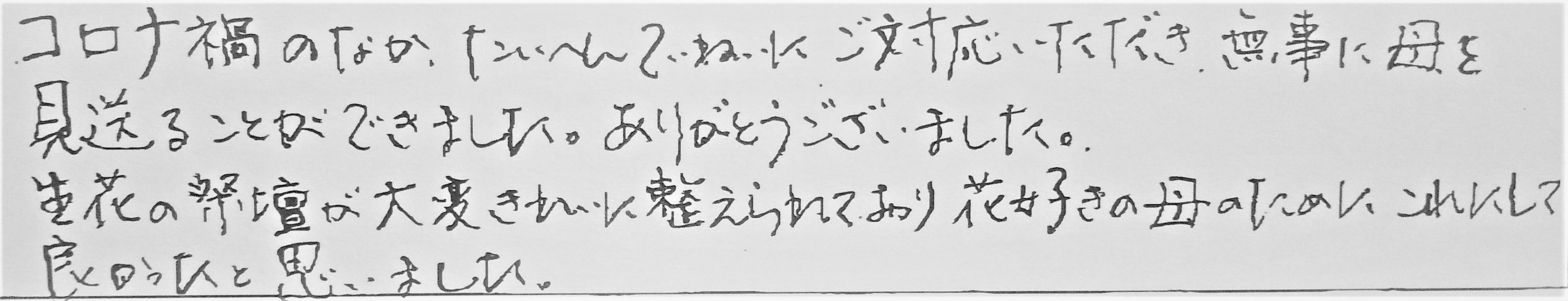 コロナ禍のなか、たいへんていねいにご対応いただき、無事に母を
見送ることができました。ありがとうございました。
生花の祭壇が大変きれいに整えられており花好きの母のために これにして
良かったと思いました。